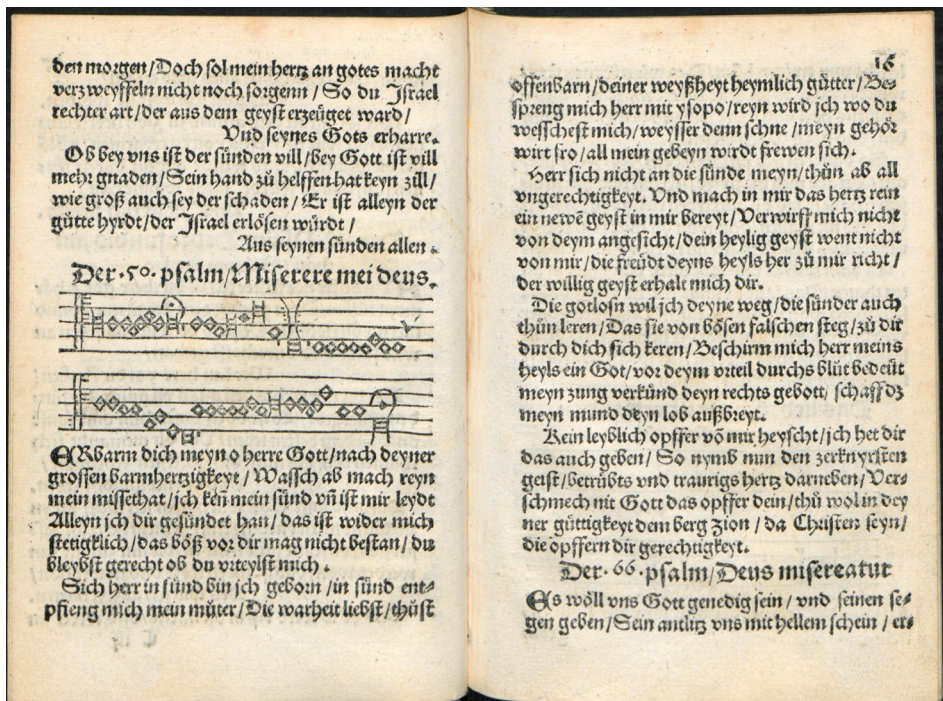 den morgen/Doch sol mein hertz an gotes macht
verzweyffeln nicht noch sorgenn/So du Israel
rechter art/der aus dem geyst erzeüget ward/
Vnd seynes Gots erharre.
Ob bey vns ist der sünden vill/bey Gott ist vill
mehr gnaden/Sein hand zů helffen hat keyn zill/
wie groß auch sey der schaden/Er ist alleyn der
gütte hyrdt/der Israel erlösen würdt/
Aus seynen sünden allen.
Der .50. psalm/Miserere mei deus.
ERbarm dich meyn o herre Gott/nach deyner
grossen barmhertzigkeyt/Wassch ab mach reyn
mein missethat/jch keñ mein sünd vñ ist mir leydt
Alleyn jch dir gesündet han/das ist wider mich
stetigklich/das böß vor dir mag nicht bestan/du
bleybst gerecht ob du vrteylst mich.
Sich herr in sünd bin jch geborn/in sünd ent⸗
pfieng mich mein můter/Die warheit liebst/thůst
16
offenbarn/deiner weyßheyt heymlich gütter/Be⸗
spreng mich herr mit ysopo/reyn wird jch wo du
wesschest mich/weysser denn schne/meyn gehör
wirt fro/all mein gebeyn wirdt frewen sich.
Herr sich nicht an die sünde meyn/thůn ab all
vngerechtigkeyt. Vnd mach in mir das hertz rein
ein newē geyst in mir bereyt/Verwirff mich nicht
von deym angesicht/dein heylig geyst went nicht
von mir/die freüdt deyns heyls her zů mir richt/
der willig geyst erhalt mich dir.
Die gotlosn wil jch deyne weg/die sünder auch
thůn leren/Das sie von bösen falschen steg/zů dir
durch dich sich keren/Beschirm mich herr meins
heyls ein Got/vor deym vrteil durchs blůt bedeüt
meyn zung verkünd deyn rechts gebott/schaff dz
meyn mund deyn lob außbreyt.
Kein leyblich opffer võ mir heyscht/jch het dir
das auch geben/So nymb nun den zerknyrsten
geist/betrübts vnd traurigs hertz darneben/Ver⸗
schmech nit Gott das opffer dein/thů wol in dey
ner güttigkeyt dem berg Zion/da Christen seyn/
die opffern dir gerechtigkeyt.
Der .66. psalm/Deus misereatur
Es wöll vns Gott genedig sein/vnd seinen se⸗
gen geben/Sein antlitz vns mit hellem schein/er⸗